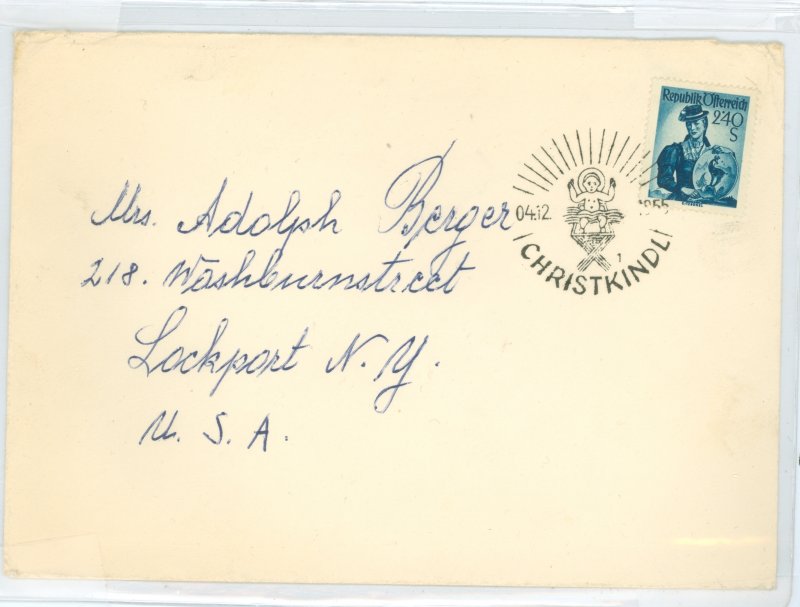 Republik Österreich
2.40
S
04.12. 1955
1
CHRISTKINDL
Mrs. Adolph Berger
218. Washburnstreet
Lockport N. Y.
U. S. A.